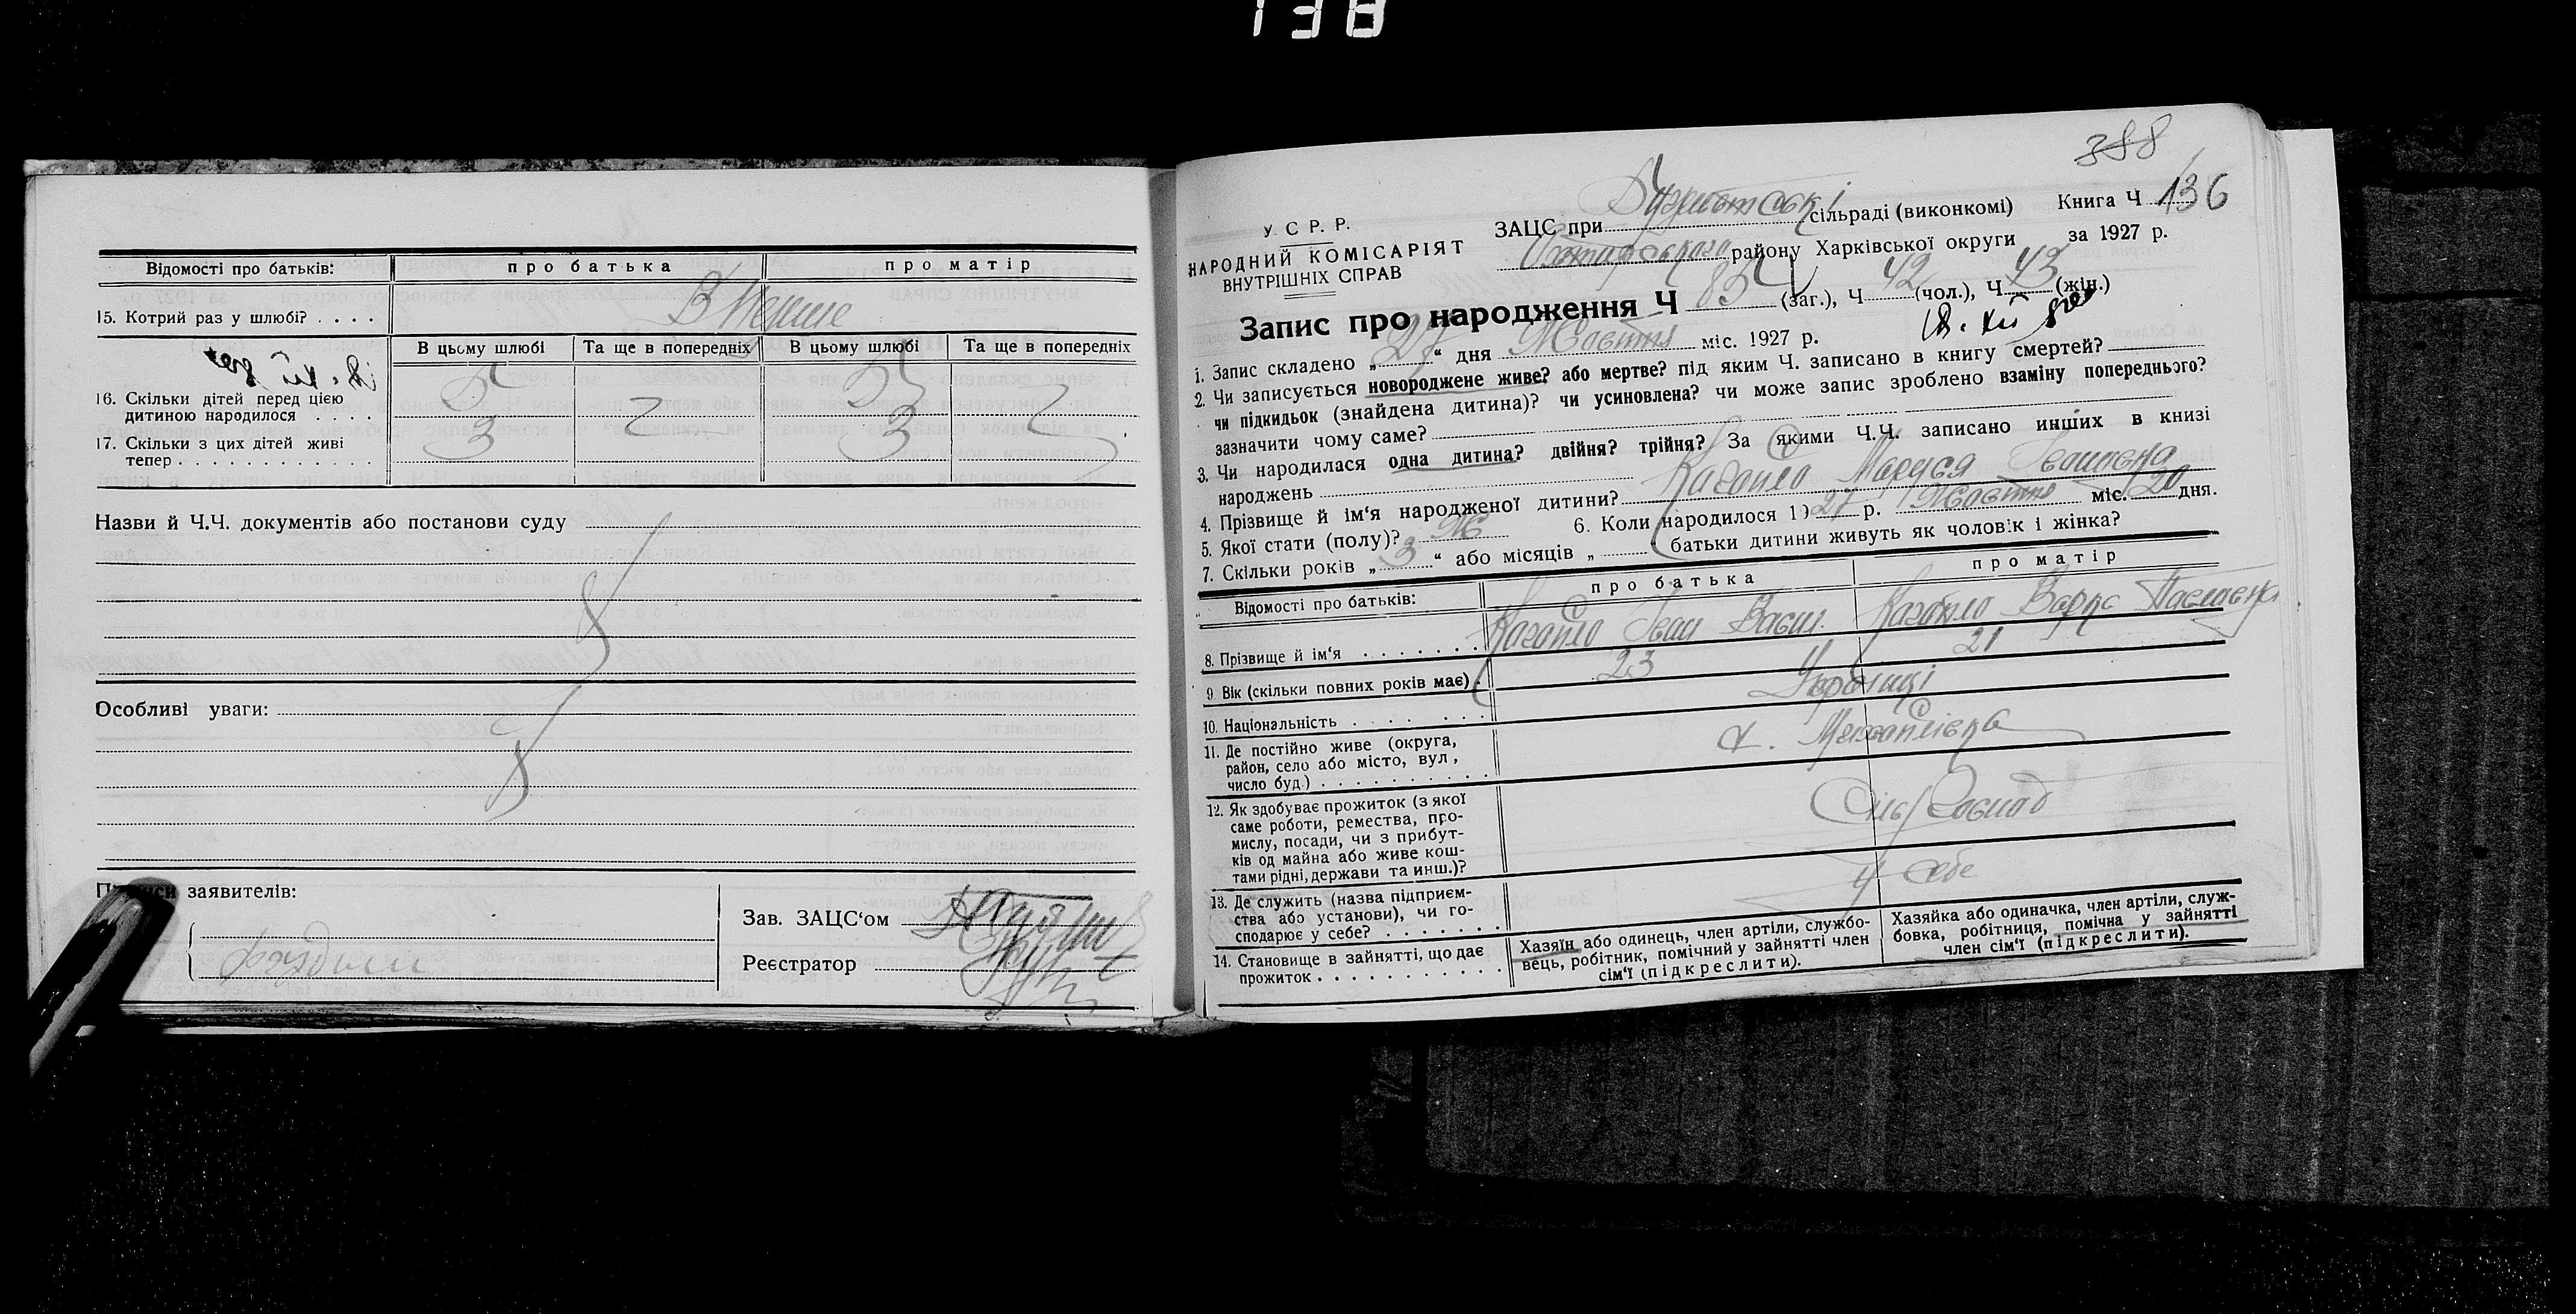 138
Відомості про батьків: про батька про матір
15. Котрий раз у шлюбі? . . . . Вперше
В цьому шлюбі Та ще в попередніх В цьому шлюбі Та ще в попередніх
16. Скільки дітей перед цією
дитиною народилося . . . .
17. Скільки з цих дітей живі
тепер . . . . . . . . . . . . 3 3
Назви й Ч.Ч. документів або постанови суду
Особливі уваги:
заявителів:
Зав. ЗАЦС‘ом
Реєстратор
388
У. С. Р. Р.
НАРОДНИЙ КОМІСАРІЯТ
ВНУТРІШНІХ СПРАВ
ЗАЦС при сільраді (виконкомі) Книга Ч 136
району Харківської округи за 1927 р.
Запис про народження Ч 85 (заг.), Ч 42 (чол.), Ч 43 (жін.)
1. Запис складено „27“ дня Жовтня міс. 1927 р.
2. Чи записується новороджене живе? або мертве? під яким Ч. записано в книгу смертей?
чи підкидьок (знайдена дитина)? чи усиновлена? чи може запис зроблено взаміну попереднього?
зазначити чому саме?
3. Чи народилася одна дитина? двійня? трійня? За якими Ч.Ч. записано инших в книзі
народжень
4. Прізвище й ім‘я народженої дитини? Маруся Івановна
5. Якої стати (полу)? Ж 6. Коли народилося 1927 р. Жовтня міс. 20 дня.
7. Скільки років „3“ або місяців „ “ батьки дитини живуть як чоловік і жінка?
Відомості про батьків: про батька про матір
8. Прізвище й ім‘я . . . . . . . Іван Васил. Варка Павловна
9. Вік (скільки повних років має) . 23 21
10. Національність . . . . . . . Українці
11. Де постійно живе (округа,
район, село або місто, вул.,
число буд.) . . . . . . . . . . х. Михайлівка
12. Як здобуває прожиток (з якої
саме роботи, ремества, про-
мислу, посади, чи з прибут-
ків од майна або живе кош-
тами рідні, держави та инш.)?
13. Де служить (назва підприєм-
ства або установи), чи го-
сподарює у себе? . . . . . . . У себе
14. Становище в зайнятті, що дає
прожиток . . . . . . . . . . .
Хазяїн або одинець, член артіли, службо-
вець, робітник, помічний у зайнятті член
сім‘ї (підкреслити).
Хазяйка або одиначка, член артіли, служ-
бовка, робітниця, помічна у зайнятті
член сім‘ї (підкреслити).